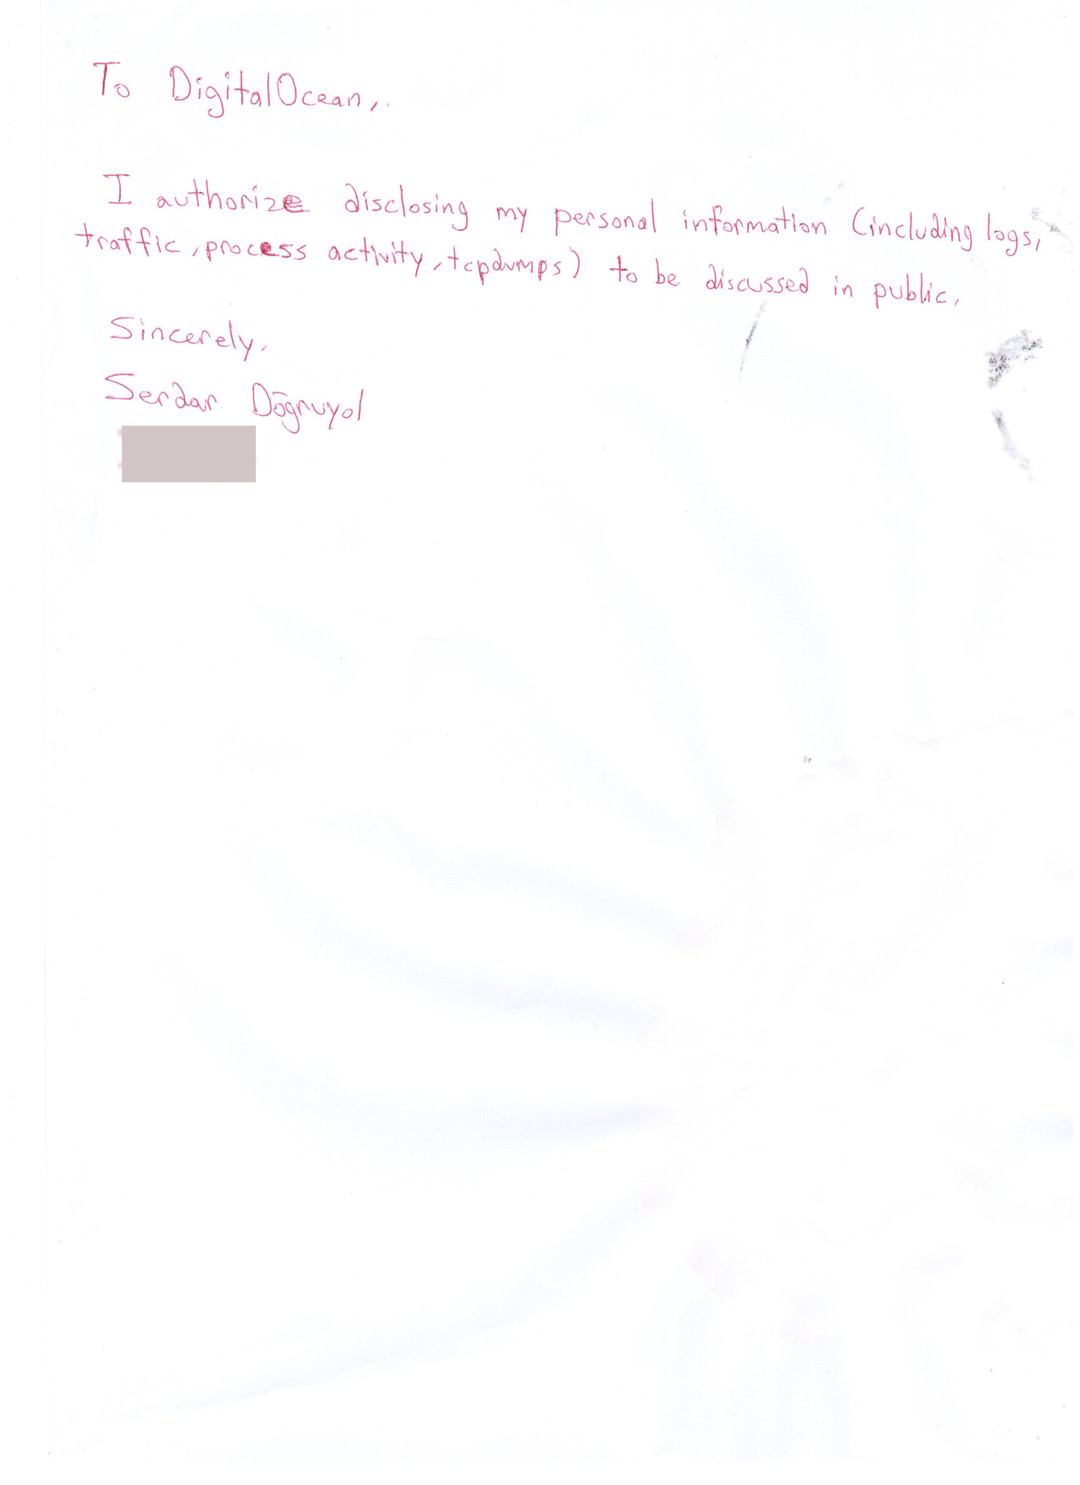 To DigitalOcean,.
I authorize disclosing my personal information (including logs,
traffic, process activity, tcpdumps) to be discussed in public.
Sincerely,
Serdar Doğruyol